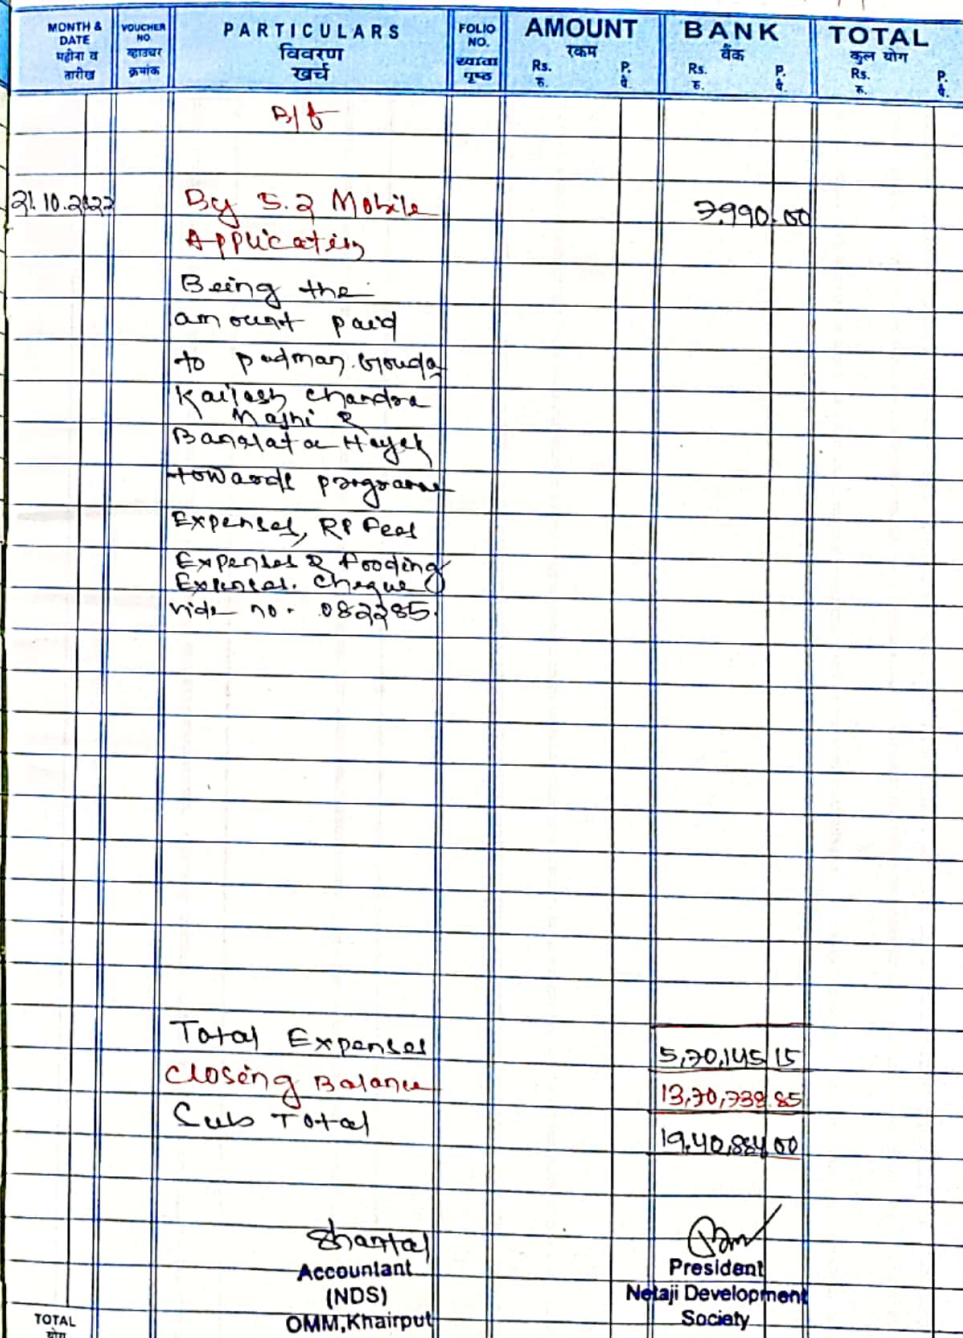 MONTH & DATE महीना व तारीख
VOUCHER NO. व्हाउचर क्रमांक
PARTICULARS विवरण खर्च
FOLIO NO. खाता पृष्ठ
AMOUNT रकम Rs. रु. P. पै.
BANK बैंक Rs. रु. P. पै.
TOTAL कुल योग Rs. रु. P. पै.
B/f
21.10.2022 By 5.2 Mobile 7,990.00
Application
Being the
amount paid
to padman Gouda
Kailash Chandra
Majhi &
Banalata Nayak
towards programe
Expenses, RP Fees
Expenses & fooding
Expenses. Cheque
vide no. 082285.
Total Expenses 5,70,145 15
Closing Balance 13,70,738 85
Sub Total 19,40,884 00
Accountant
(NDS)
OMM,Khairput
President
Netaji Development
Society
TOTAL
योग